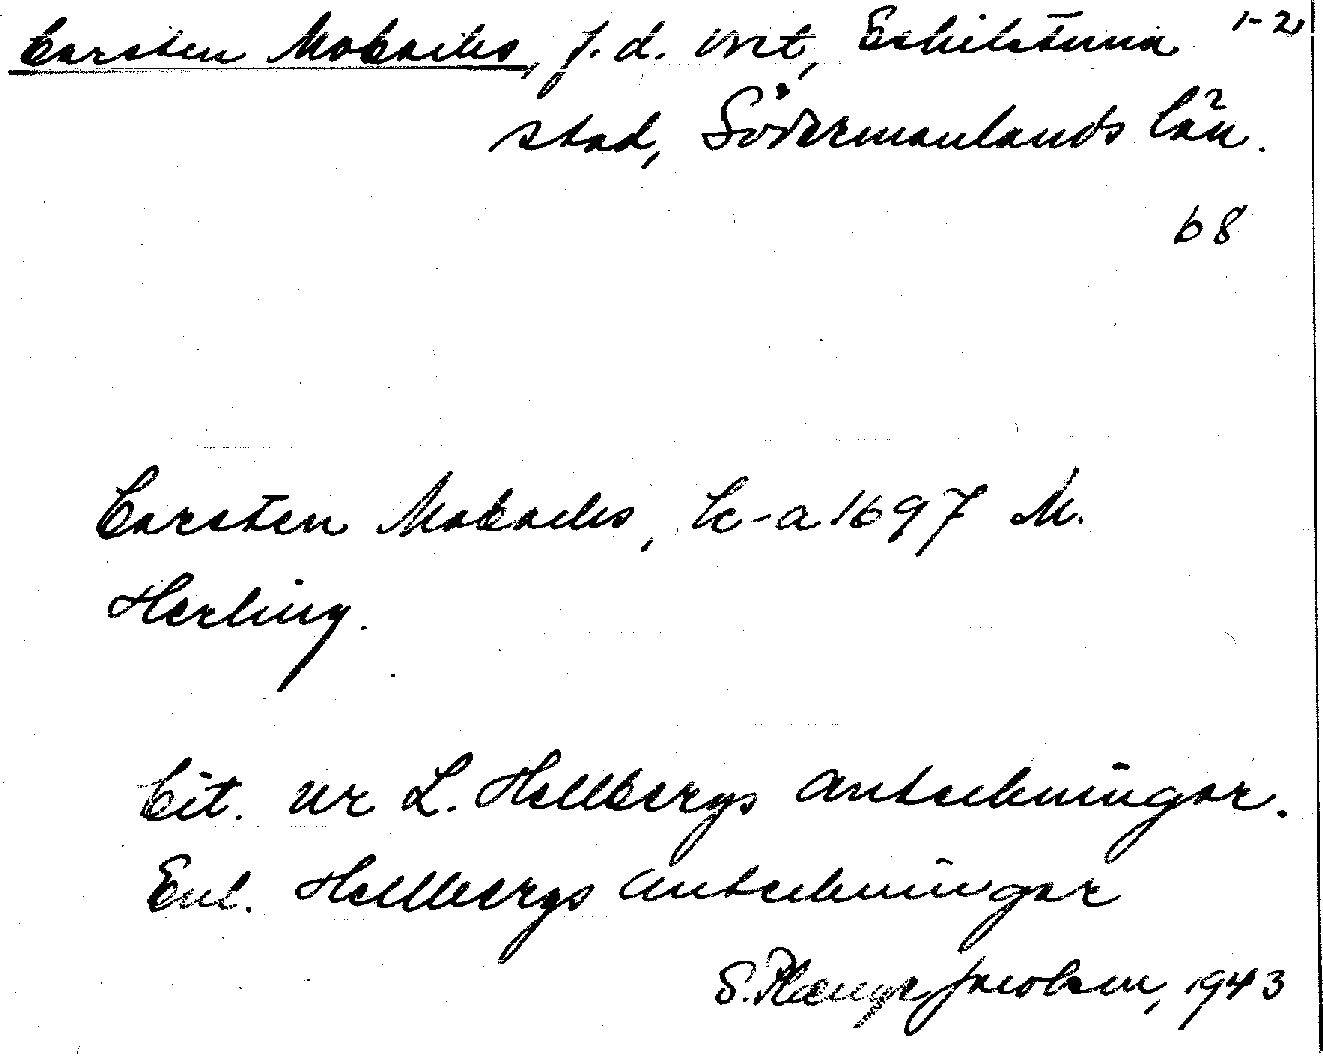 Carsten Mobacks, f.d. vret, Eskilstuna 1-2,
stad, Södermanlands län.
68
Carsten Mobacks, Lc-a 1697 M.
Herling.
Cit. ur L. Hellbergs anteckningar.
Enl. Hellbergs anteckningar
S. Jacobsen, 1943